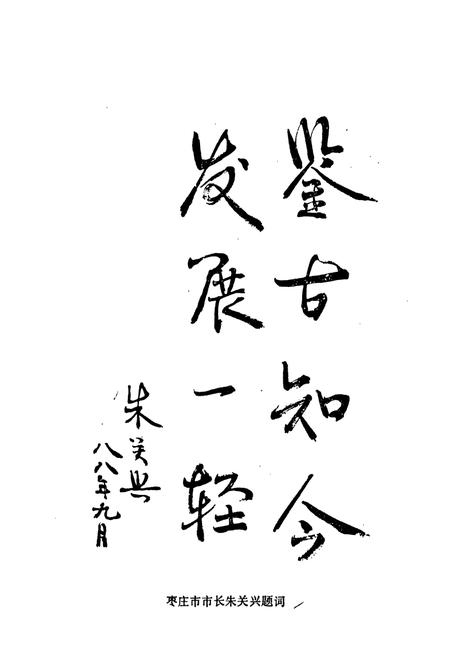 鉴古知今
发展一轻
朱关兴
八八年九月
枣庄市市长朱关兴题词